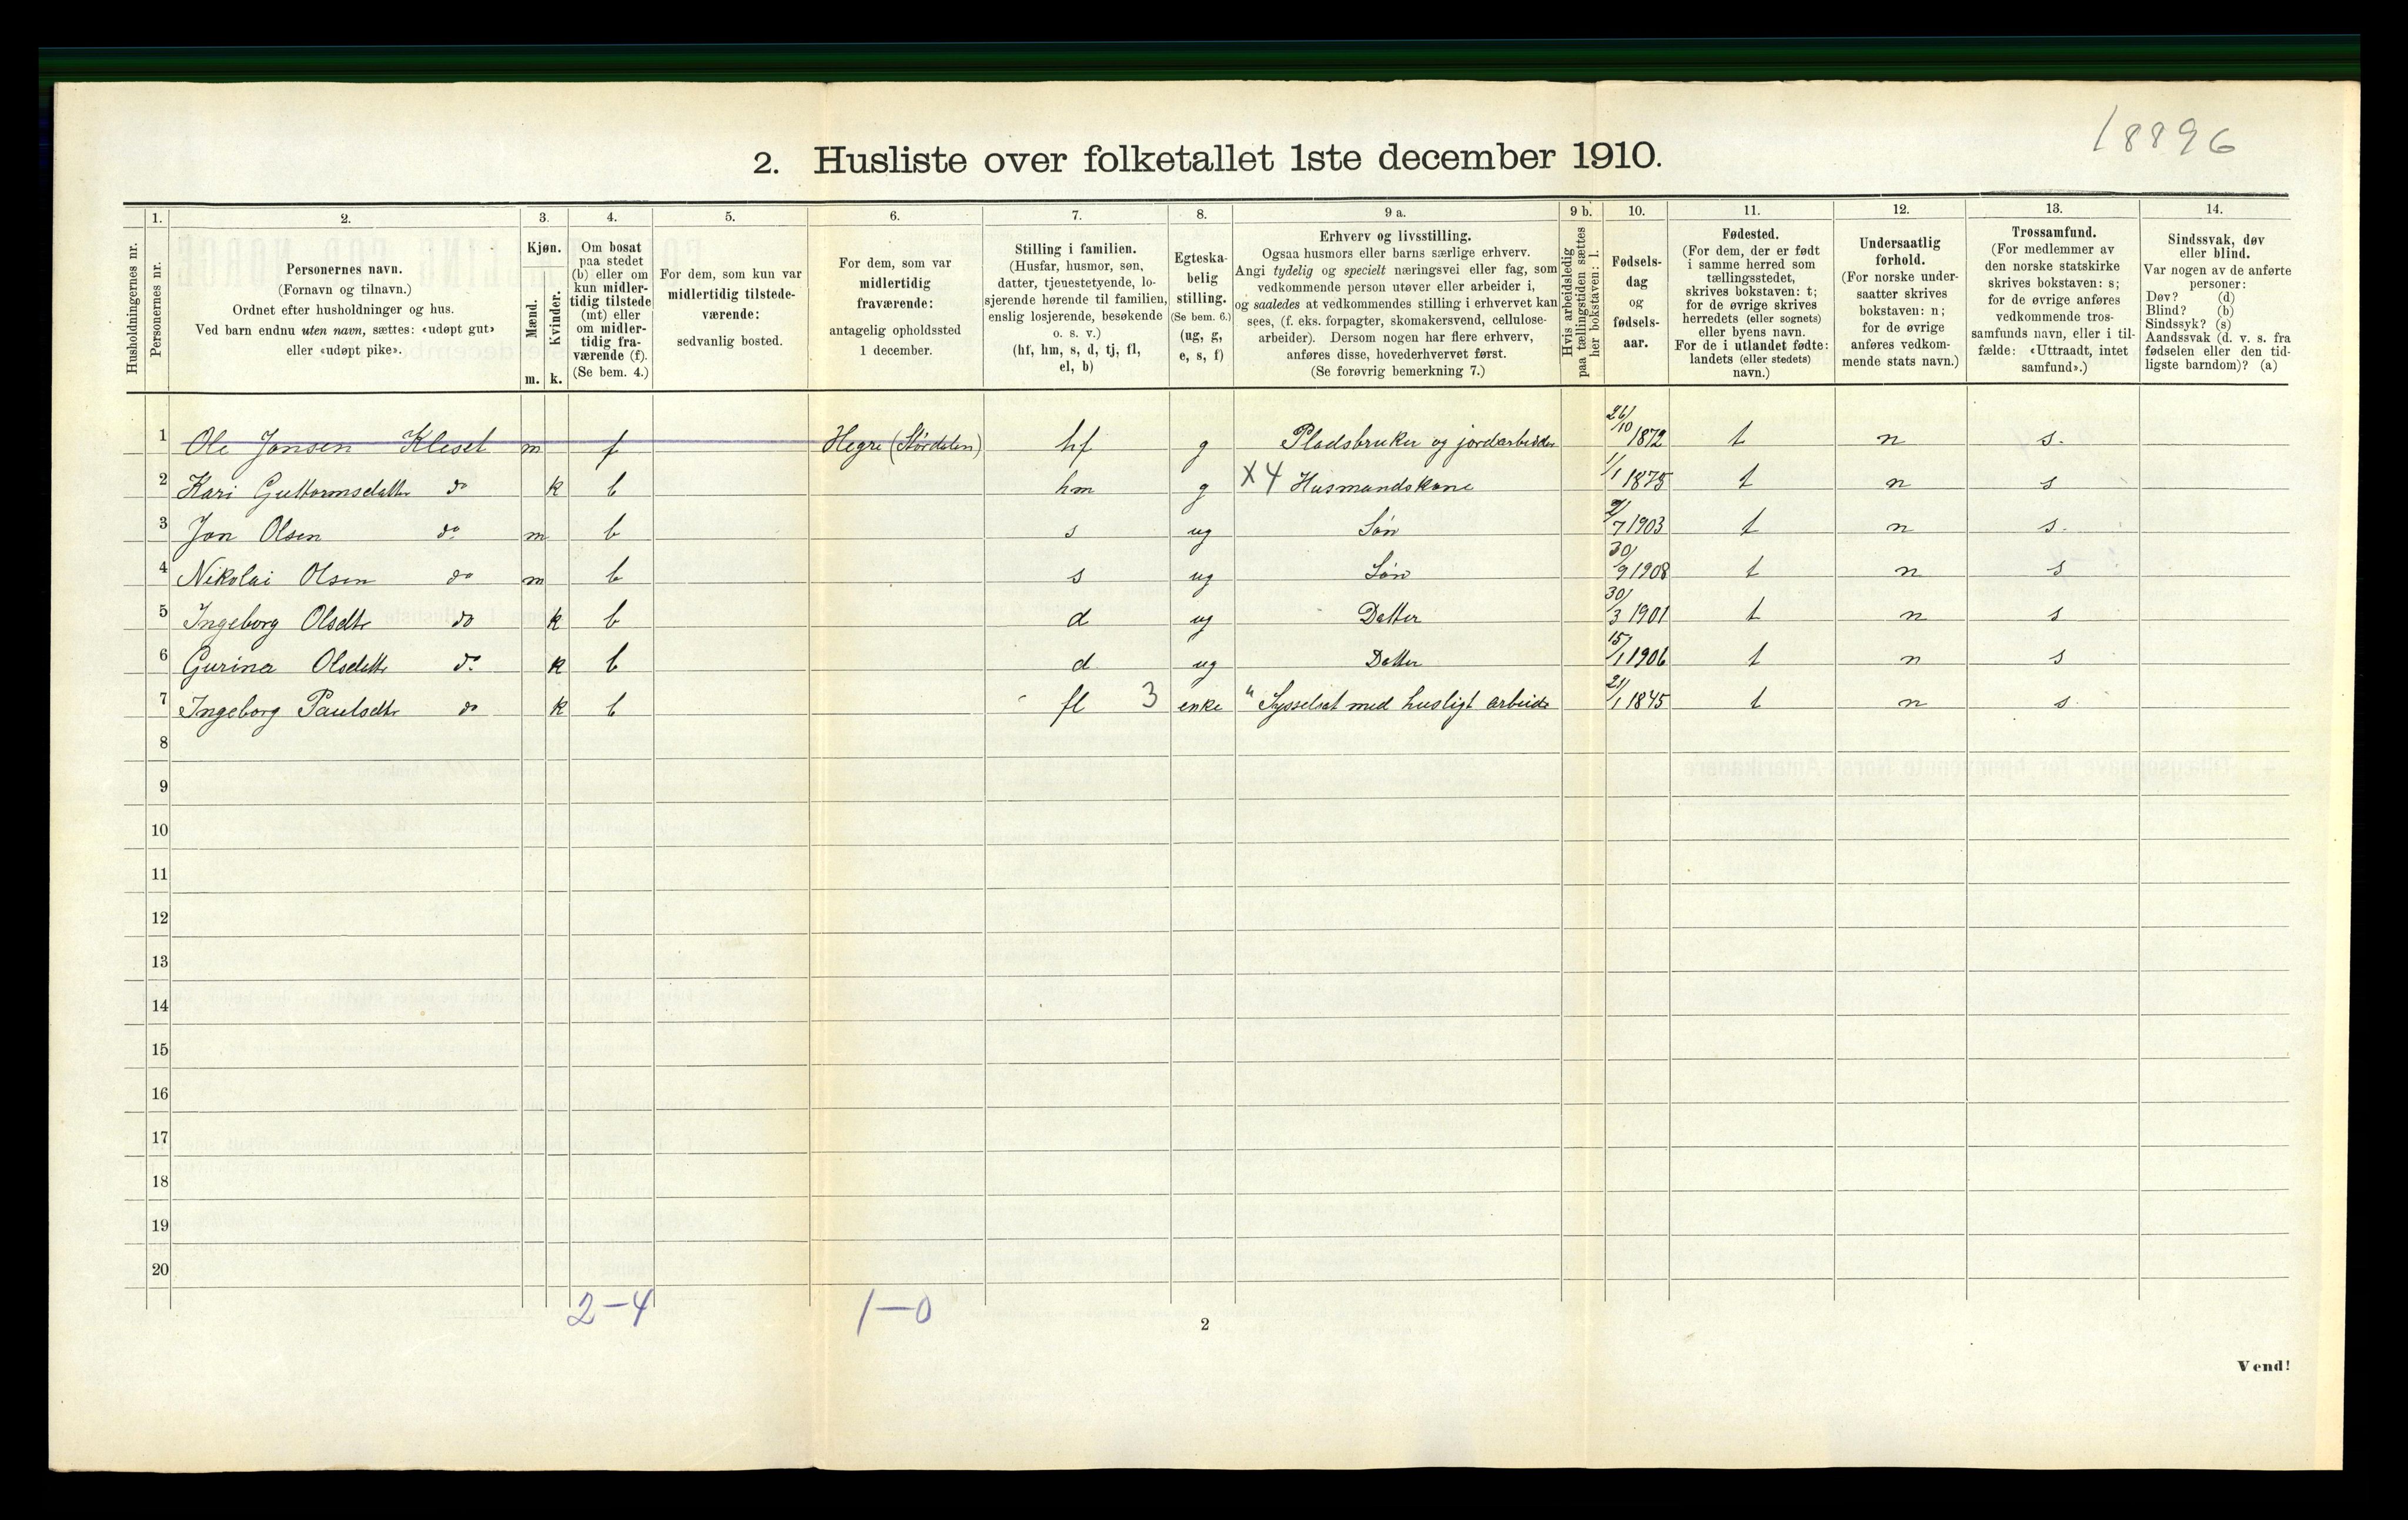 18896
2. Husliste over folketallet 1ste december 1910.
Husholdningernes nr.
1.
Personernes nr.
2.
Personernes navn.
(Fornavn og tilnavn.)
Ordnet efter husholdninger og hus.
Ved barn endnu uten navn, sættes: «udøpt gut»
eller «udøpt pike».
3.
Kjøn.
Mænd.
Kvinder.
m. k.
4.
Om bosat
paa stedet
(b) eller om
kun midler-
tidig tilstede
(mt) eller
om midler-
tidig fra-
værende (f).
(Se bem. 4.)
5.
For dem, som kun var
midlertidig tilstede-
værende:
sedvanlig bosted.
6.
For dem, som var
midlertidig
fraværende:
antagelig opholdssted
1 december.
7.
Stilling i familien.
(Husfar, husmor, søn,
datter, tjenestetyende, lo-
sjerende hørende til familien,
enslig losjerende, besøkende
o. s. v.)
(hf, hm, s, d, tj, fl,
el, b)
8.
Egteska-
belig
stilling.
(Se bem. 6.)
(ug, g,
e, s, f)
9 a.
Erhverv og livsstilling.
Ogsaa husmors eller barns særlige erhverv.
Angi tydelig og specielt næringsvei eller fag, som
vedkommende person utøver eller arbeider i,
og saaledes at vedkommendes stilling i erhvervet kan
sees, (f. eks. forpagter, skomakersvend, cellulose-
arbeider). Dersom nogen har flere erhverv,
anføres disse, hovederhvervet først.
(Se forøvrig bemerkning 7.)
9 b.
Hvis arbeidsledig
paa tællingstiden sættes
her bokstaven: l.
10.
Fødsels-
dag
og
fødsels-
aar.
11.
Fødested.
(For dem, der er født
i samme herred som
tællingsstedet,
skrives bokstaven: t;
for de øvrige skrives
herredets (eller sognets)
eller byens navn.
For de i utlandet fødte:
landets (eller stedets)
navn.)
12.
Undersaatlig
forhold.
(For norske under-
saatter skrives
bokstaven: n;
for de øvrige
anføres vedkom-
mende stats navn.)
13.
Trossamfund.
(For medlemmer av
den norske statskirke
skrives bokstaven: s;
for de øvrige anføres
vedkommende tros-
samfunds navn, eller i til-
fælde: «Uttraadt, intet
samfund».)
14.
Sindssvak, døv
eller blind.
Var nogen av de anførte
personer:
Døv? (d)
Blind? (b)
Sindssyk? (s)
Aandssvak (d. v. s. fra
fødselen eller den tid-
ligste barndom)? (a)
1 Ole Jonsen Kleset m f Hegre (Størdalen) hf g Pladsbruker og jordarbeider 26/10 1872 t n s.
2 Kari Guttormsdatter do k b hm g X4 Husmandskone 1/1 1875 t n s
3 Jon Olsen do m b s ug Søn 9/7 1903 t n s.
4 Nikolai Olsen do m b s ug Søn 30/9 1908 t n s
5 Ingeborg Olsdtr do k b d ug Datter 30/3 1901 t n s
6 Gurina Olsdatter do k b d ug Datter 15/1 1906 t n s
7 Ingeborg Paulsdtr do k b fl 3 enke " Sysselsat med husligt arbeide 21/1 1845 t n s
8
9
10
11
12
13
14
15
16
17
18
19
20
2-4 1-0
2
Vend!